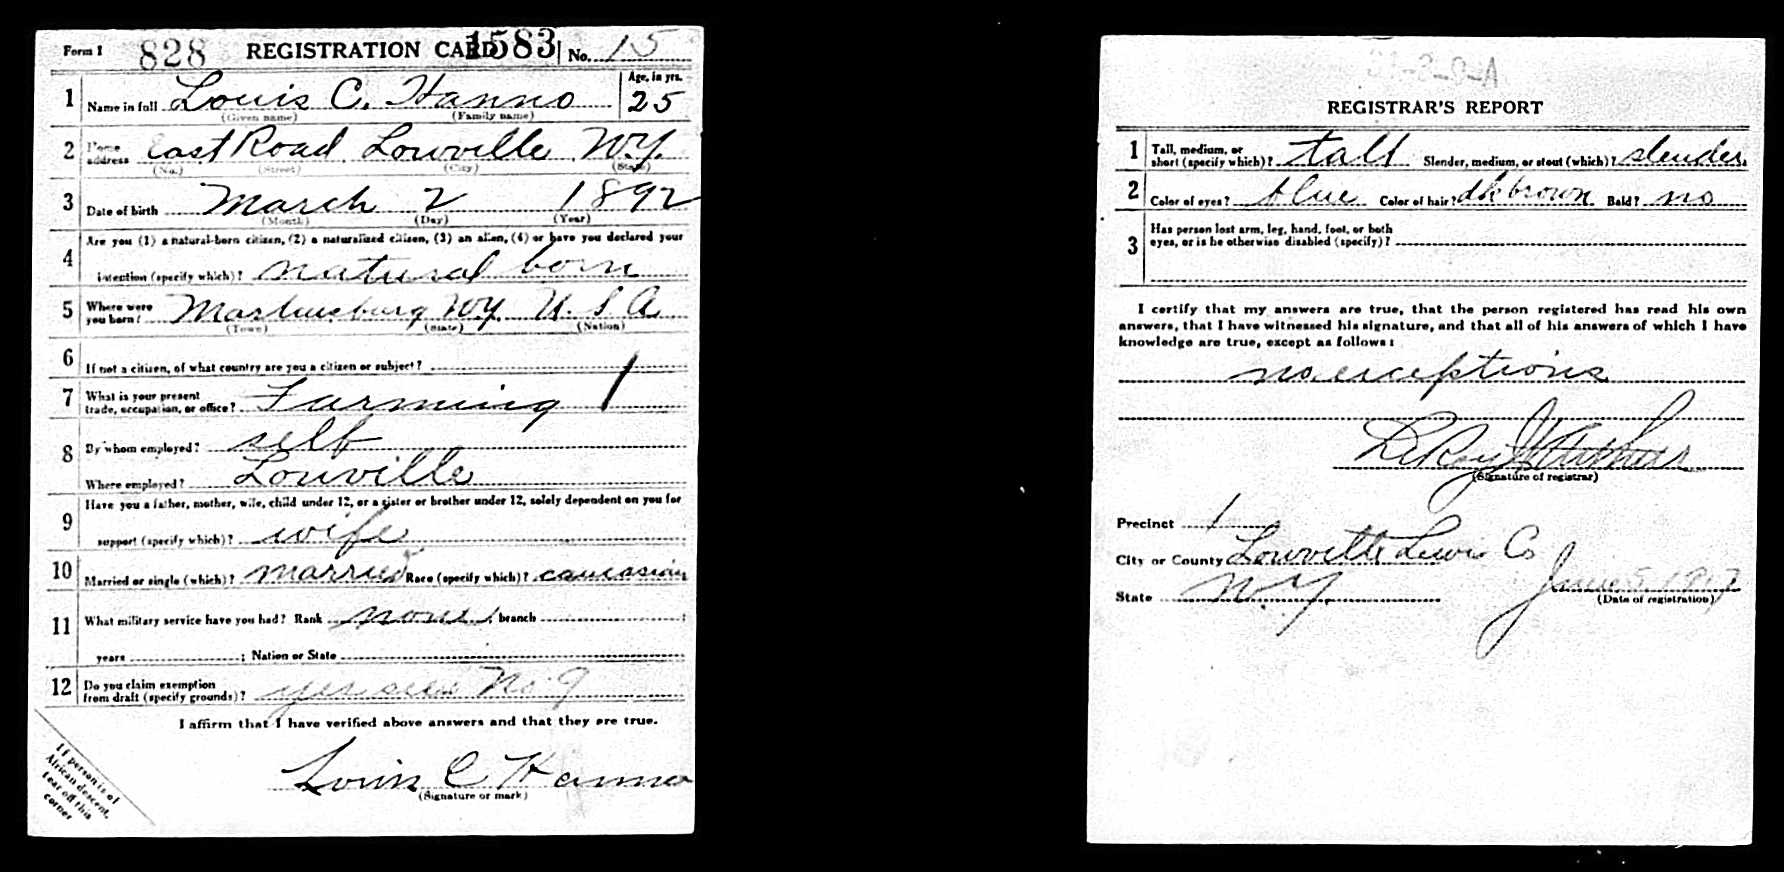 Form 1 828 REGISTRATION CARD 1583 No. 15
1 Name in full Louis C. Hanno Age, in yrs. 25
(Given name) (Family name)
2 Home address East Road Lowville N.Y.
(No.) (Street) (City) (State)
3 Date of birth March 2 1892
(Month) (Day) (Year)
4 Are you (1) a natural-born citizen, (2) a naturalized citizen, (3) an alien, (4) or have you declared your
intention (specify which)? natural born
5 Where were you born? Martinsburg N.Y. U.S.A.
(Town) (State) (Nation)
6 If not a citizen, of what country are you a citizen or subject?
7 What is your present
trade, occupation, or office? Farming 1
8 By whom employed? self
Where employed? Lowville
9 Have you a father, mother, wife, child under 12, or a sister or brother under 12, solely dependent on you for
support (specify which)? wife
10 Married or single (which)? married Race (specify which)? caucasian
11 What military service have you had? Rank none ; branch ;
years ; Nation or State
12 Do you claim exemption
from draft (specify grounds)? yes see No. 9
I affirm that I have verified above answers and that they are true.
Louis C Hanno
(Signature or mark)
If person is of
African descent,
tear off this
corner
REGISTRAR'S REPORT
1 Tall, medium, or
short (specify which)? tall Slender, medium, or stout (which)? slender
2 Color of eyes? blue Color of hair? dk brown Bald? no
3 Has person lost arm, leg, hand, foot, or both
eyes, or is he otherwise disabled (specify)?
I certify that my answers are true, that the person registered has read his own
answers, that I have witnessed his signature, and that all of his answers of which I have
knowledge are true, except as follows:
no exceptions
LeRoy
(Signature of registrar)
Precinct 1
City or County Lowville Lewis Co
State N.Y. June 5, 1917
(Date of registration)